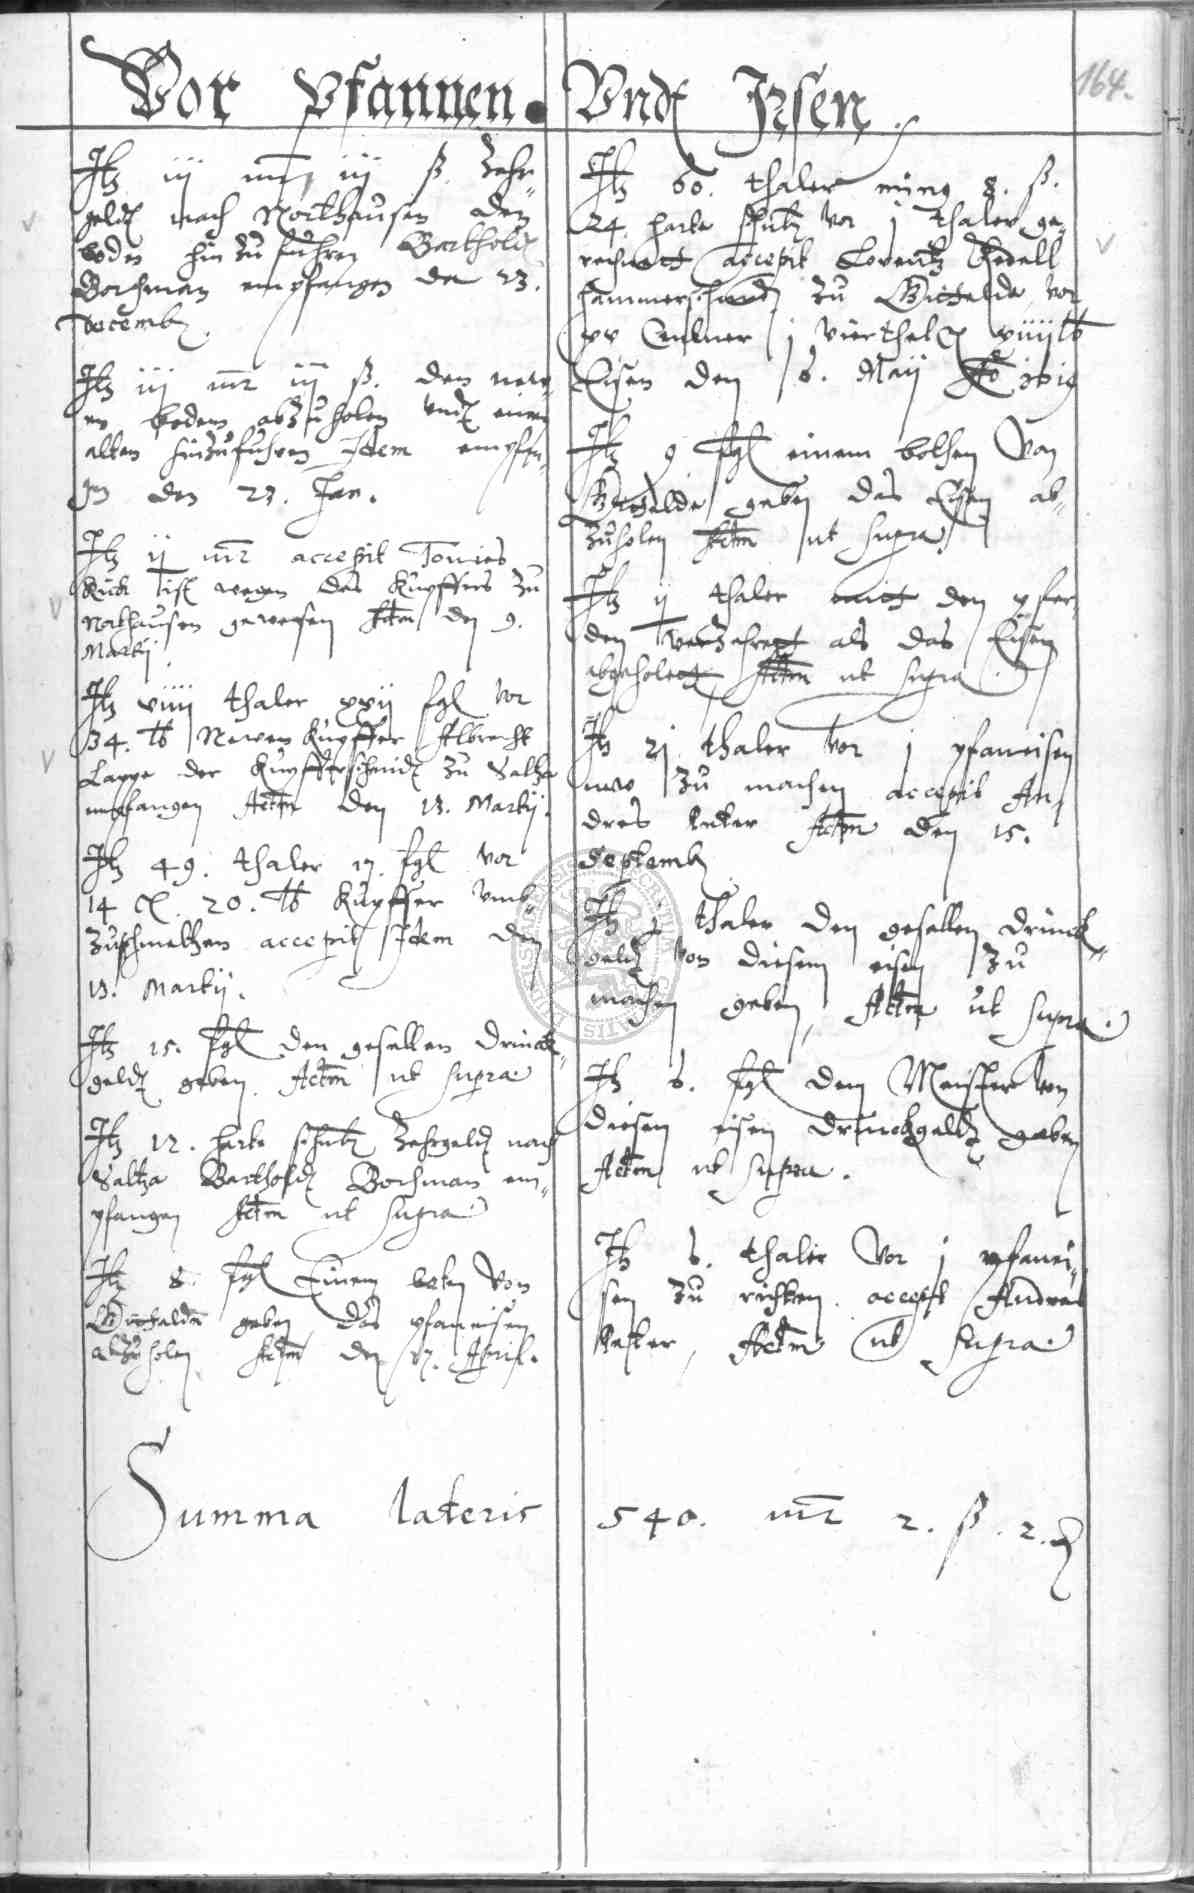 Vor Pfannen. Vnd Jsen.
164.
Itz iij mr iij ß. Zehr„
geldt nach Northausen den
boden hin zu fuhren Bartholdt
Borhman empfangen den 23.
Decemb.
Itz iij mr iij ß. den new„
en bodem abzuholen vndt einen
alten hinzufuhren Idem empfan„
gen den 23. Jan.
Itz ij mr accepit Tonies
Kück ist wegen des Kupffers zu
Northausen gewesen Actm den 9.
Martij
Itz viiij thaler xxij fgl vor
34. lb Newen Kupffer Albrecht
Lappe der Kupfferschmidt zu Saltza
empfangen Actm den 13. Martij.
Itz 49. thaler 17. fgl vor
14 C. 20. lb Kupffer vmb„
zuschmeltzen accepit Idem den
13. Martij.
Itz 15. fgl den gesellen drinck„
geldt geben Actm ut supra
Itz 12. harte schutz Zehrgeldt nach
Saltza Bartholdt Borhman em„
pfangen Actm ut supra
Itz 8 fgl Einem boten von
Gittelde geben das pfaneisen
abzuholen Actm den 17. April.
Itz 60. thaler ming 8. ß.
24. harte schutz vor j thaler ge„
rechnett accepit Lorentz
hammerschmidt zu Gittelde vor
xv Centner j viertheil xviiij lb
Eisen den 6. Maij
Itz 9 fgl einem bothen von
Gittelde geben das Eisen ab„
zuholen Actm ut supra
Itz ij thaler mitt den pfer„
den verzehrett als das Eisen
abgeholett Actm ut supra
Itz 2j thaler vor j pfaneisen
new zu machen accepit An„
dres Actm den 15.
Septemb
Itz j thaler den gesellen drinck„
geldt von diesem eisen zu
machen geben, Actm ut supra.
Itz 6. fgl dem Meister von
diesen eisen drinckgeldt geben
Actm ut supra.
Itz 6. thaler vor j pfanei„
sen zu richten. accepit Andreas
Actm ut supra
Summa lateris 540. mr 2. ß. 2. d